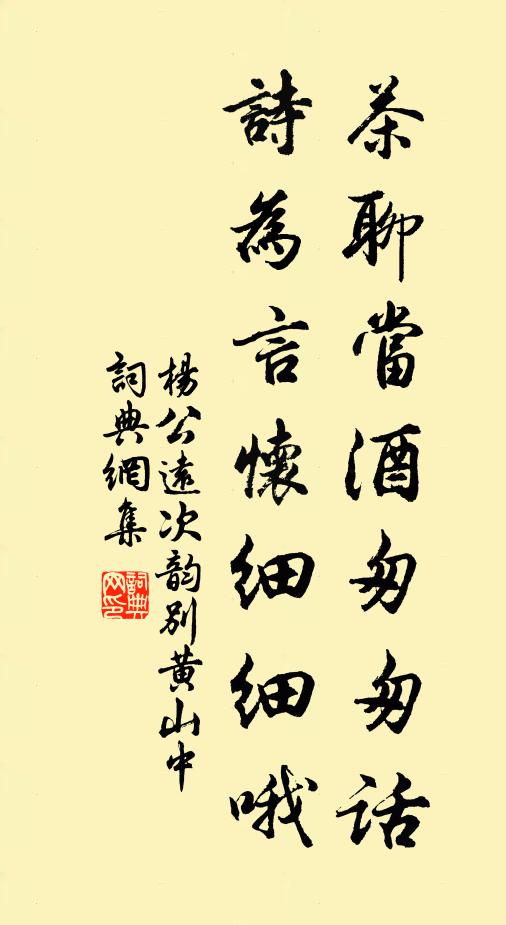 茶聊當酒匆匆話
詩為言懷細細哦
楊公遠次韵別黃山中
詞典網集
詞典网印